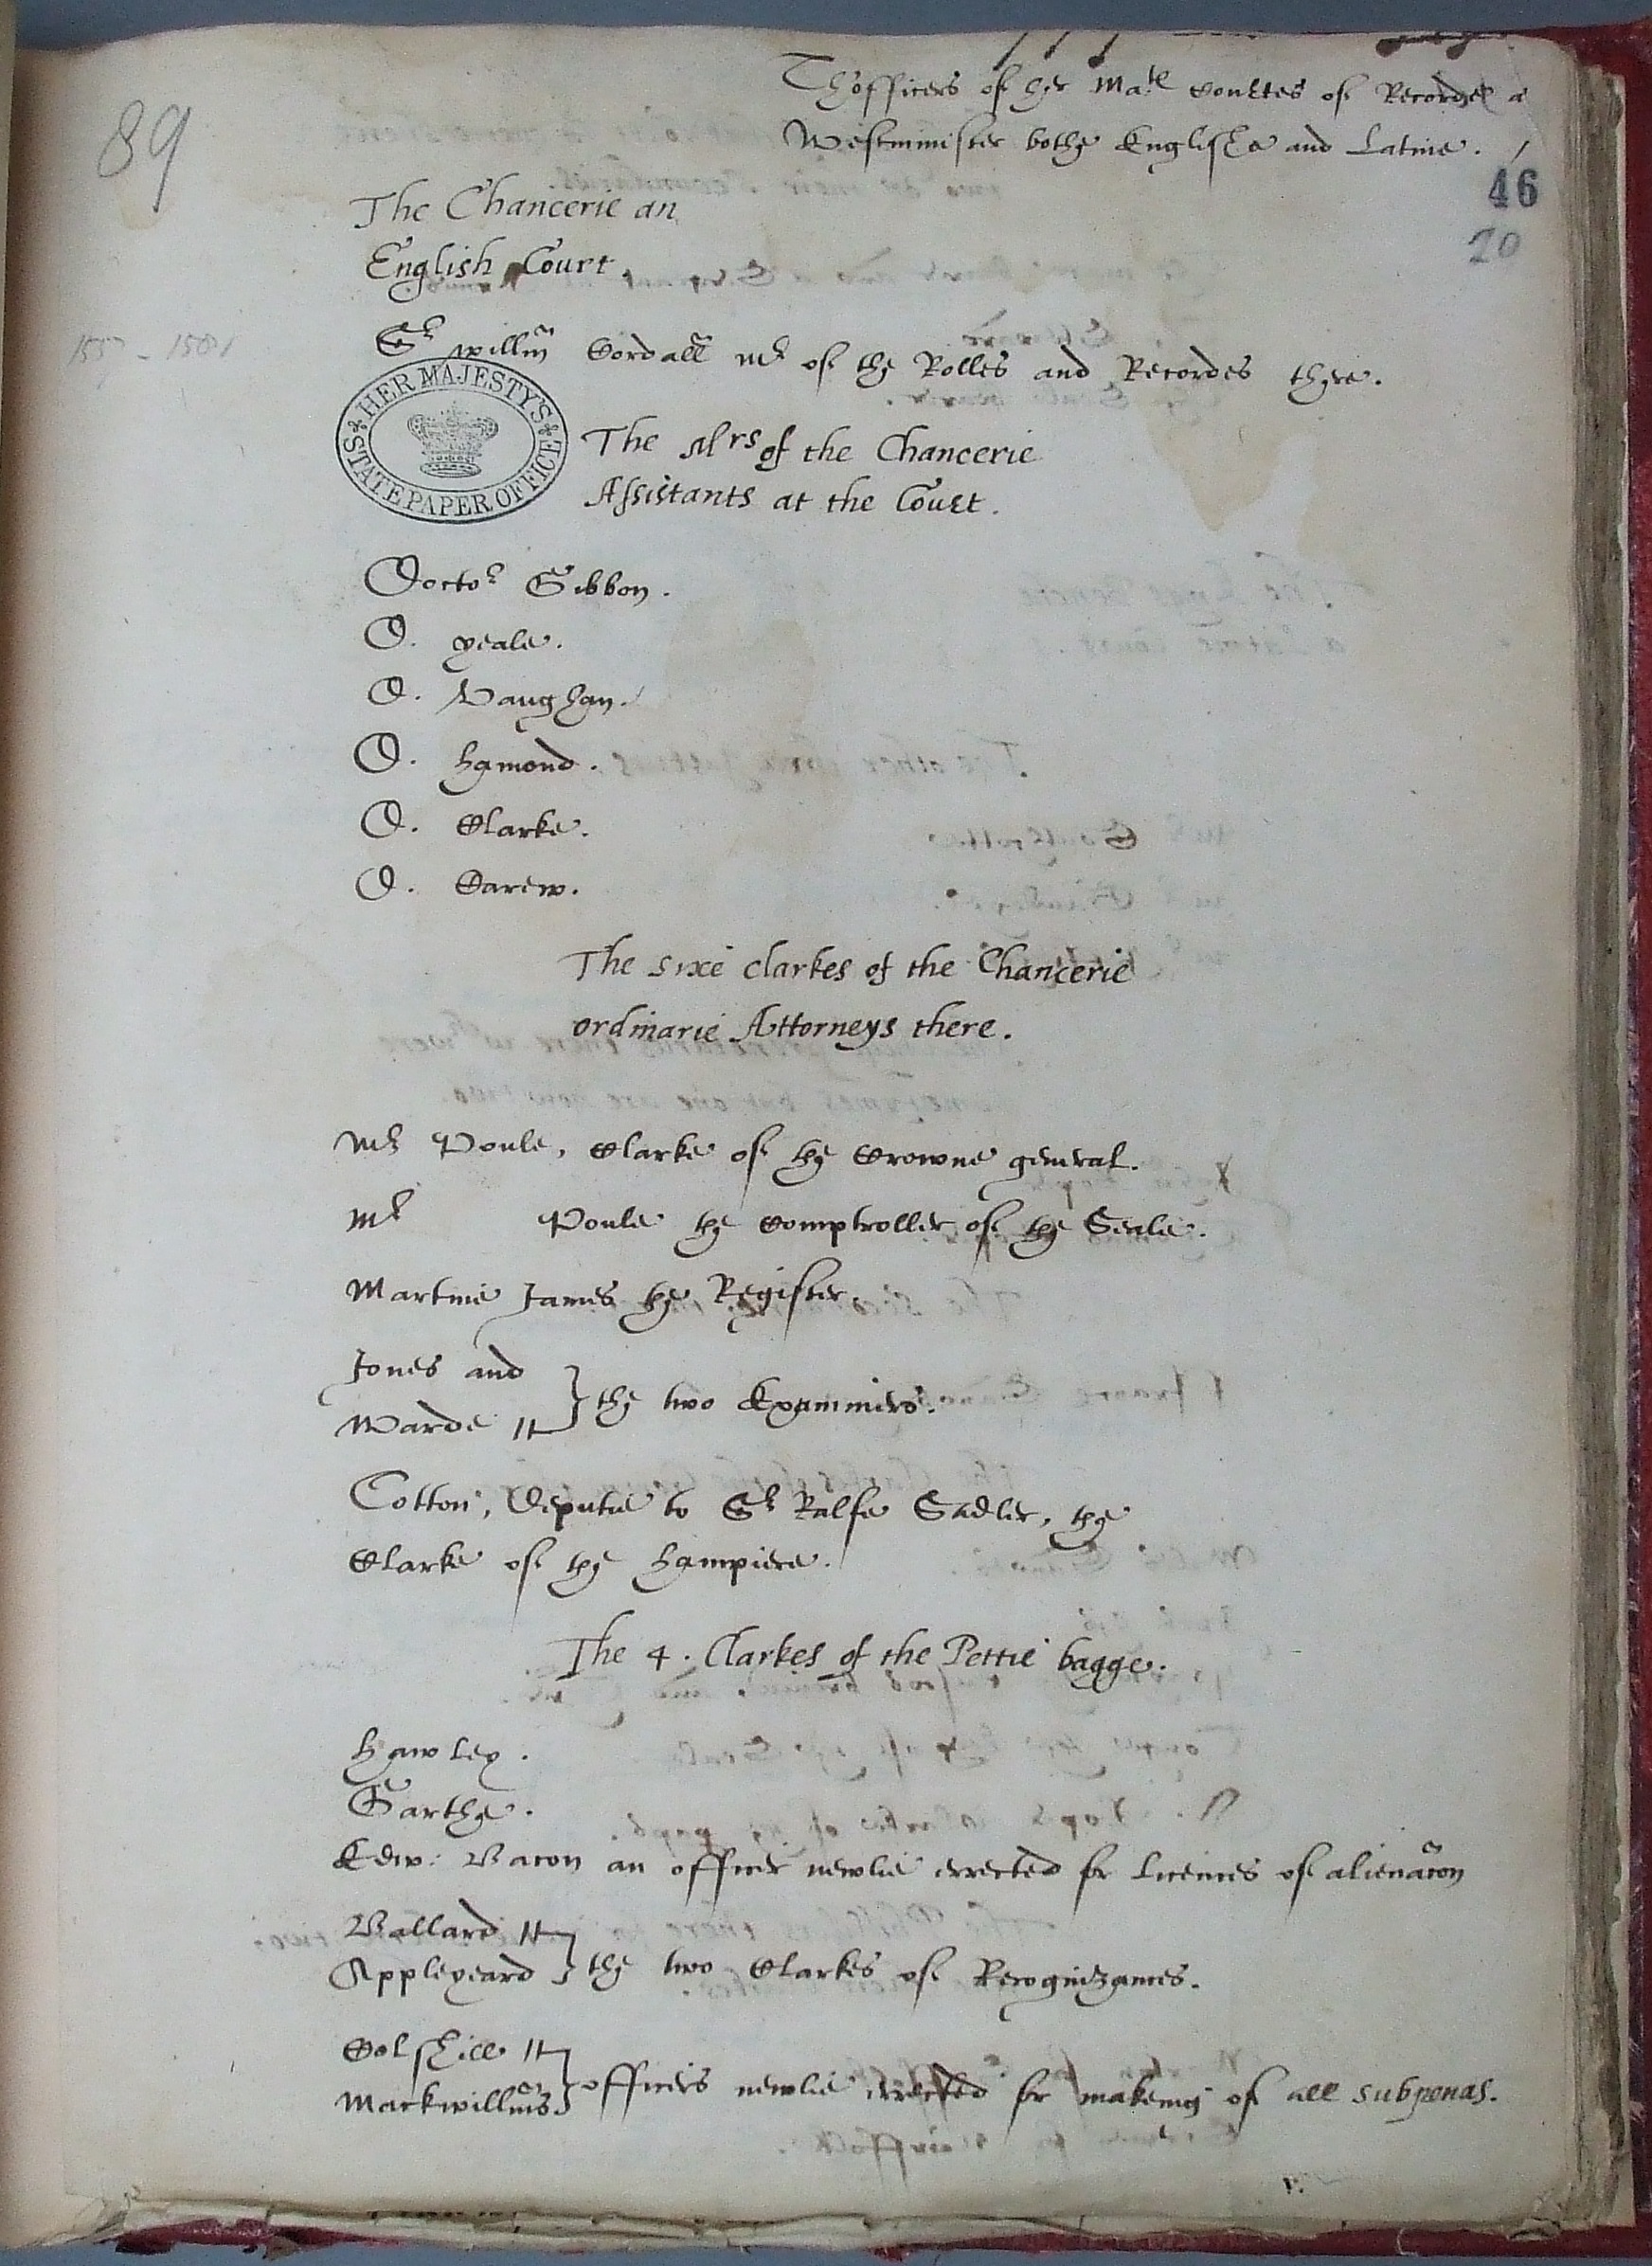 Thofficers of her Ma:te Courtes of Recordes a
Westminister bothe Englishe and Latine.
89
46
20
The Chancerie an
English Court.
Sr Willm Cordall Mr of the Rolles and Recordes there.
HER MAJESTY'S STATE PAPER OFFICE
The Mrs of the Chancerie
Assistants at the Court.
Doctor Gibbon.
D. Yeale.
D. Vaughan.
D. Hamond.
D. Clarke.
D. Carew.
The sixe clarkes of the Chancerie
ordinarie Attorneys there.
Mr Powle, Clarke of the Crowne generall.
Mr Powle the Comptroller of the Seale.
Martine James the Register.
Jones and
Warde } the two Examiners.
Cotton, Deputie to Sr Ralfe Sadler, the
Clarke of the Hampiere.
The 4. Clarkes of the Pettie bagge.
Hawley.
Garthe.
Edw: Bacon an officer newlie errected for Licences of alienacon
Vallard
Appleyeard } the two Clarkes of Recognizances.
Colshill
Mackwillms } officers newlie errected for makeing of all subpenas.